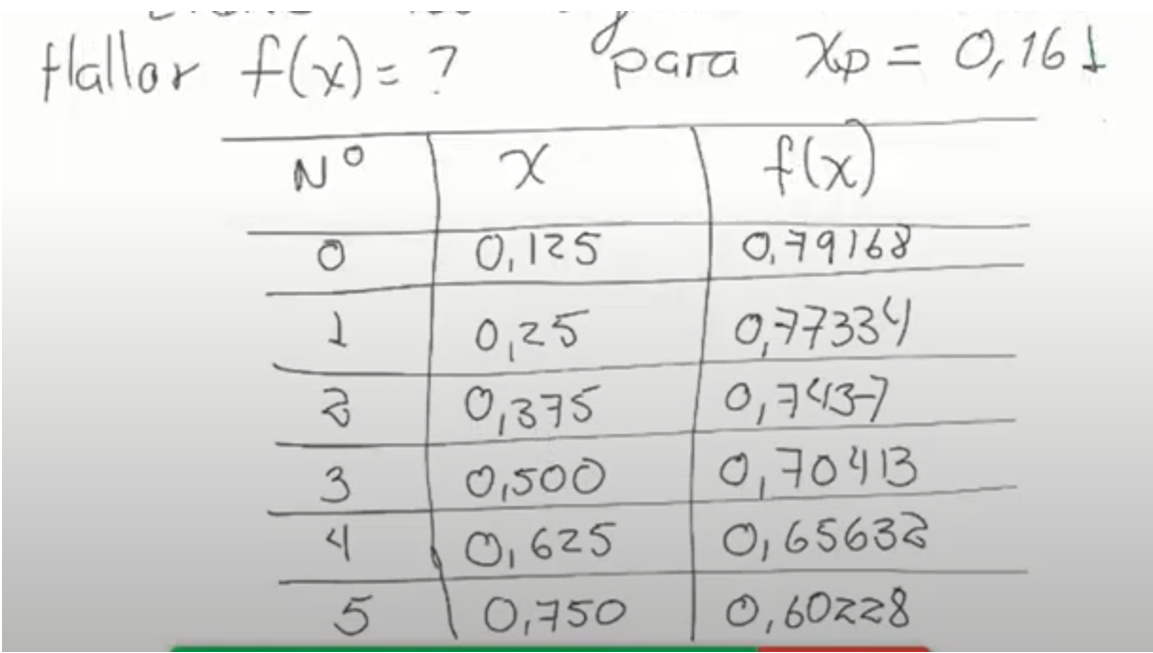 Hallar f(x) = ? para Xp = 0,161
Nº x f(x)
0 0,125 0,79168
1 0,25 0,77334
2 0,375 0,7437
3 0,500 0,70413
4 0,625 0,65632
5 0,750 0,60228